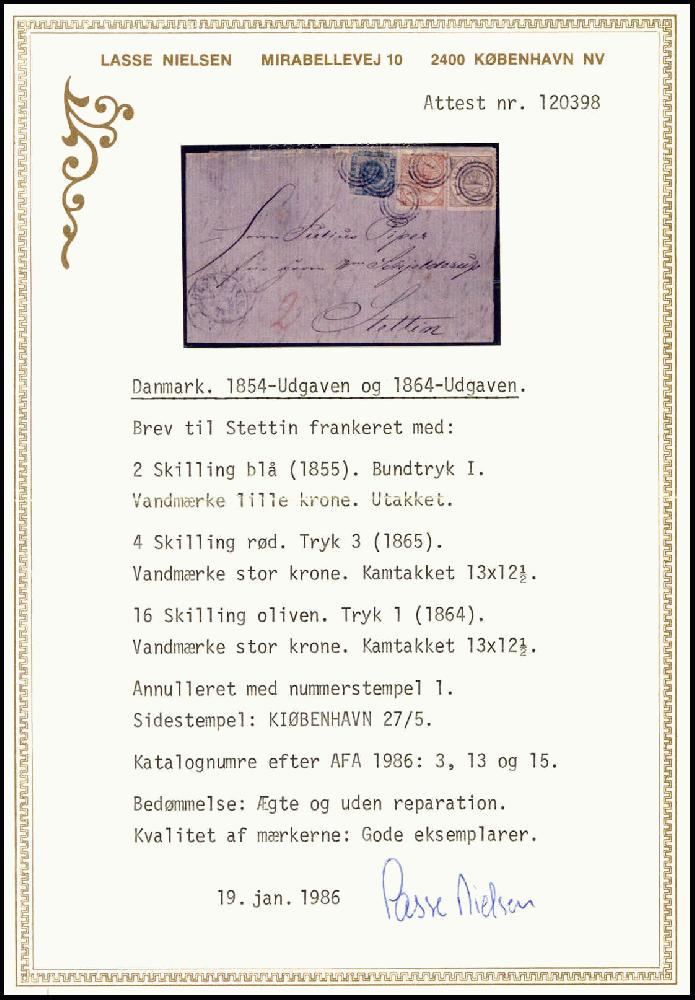 LASSE NIELSEN MIRABELLEVEJ 10 2400 KØBENHAVN NV
Attest nr. 120398
Herrn Julius Piper
Stettin
2
Danmark. 1854-Udgaven og 1864-Udgaven.
Brev til Stettin frankeret med:
2 Skilling blå (1855). Bundtryk I.
Vandmærke lille krone. Utakket.
4 Skilling rød. Tryk 3 (1865).
Vandmærke stor krone. Kamtakket 13x12½.
16 Skilling oliven. Tryk 1 (1864).
Vandmærke stor krone. Kamtakket 13x12½.
Annulleret med nummerstempel 1.
Sidestempel: KIØBENHAVN 27/5.
Katalognumre efter AFA 1986: 3, 13 og 15.
Bedømmelse: Ægte og uden reparation.
Kvalitet af mærkerne: Gode eksemplarer.
19. jan. 1986 Lasse Nielsen